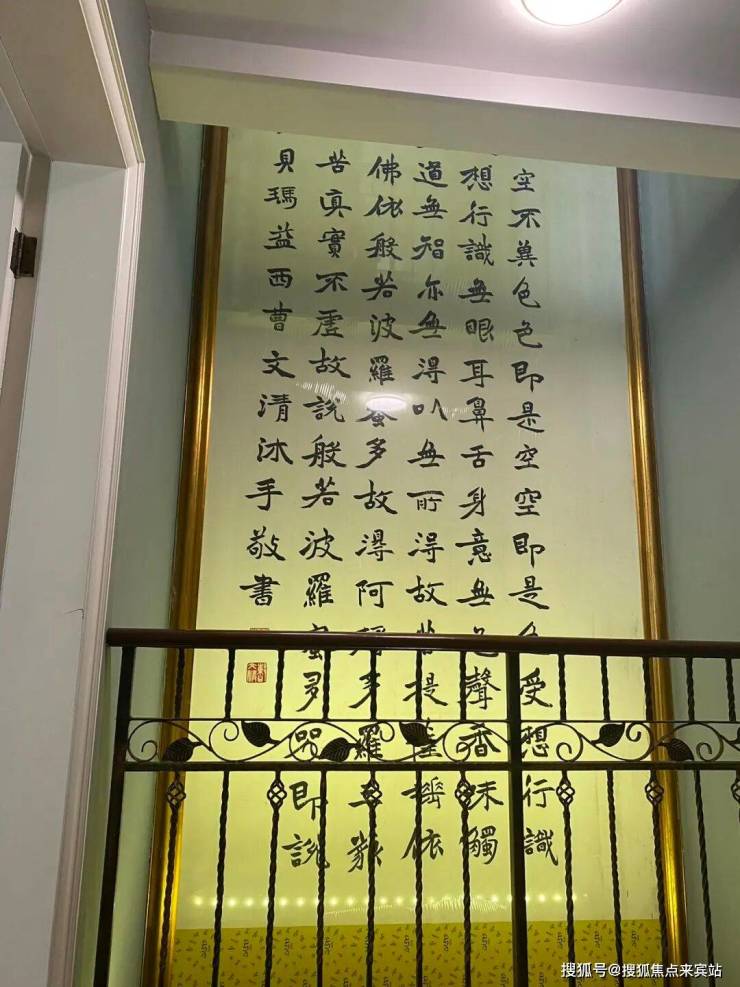 空不異色色即是空空即是色受想行識
想行識無眼耳鼻舌身意無色聲香味觸
道無智亦無得以無所得故菩提薩埵依
佛依般若波羅蜜多故得阿耨多羅三藐
苦真實不虛故說般若波羅蜜多咒即說
貝瑪益西曹文清沐手敬書
搜狐号@搜狐焦点来宾站